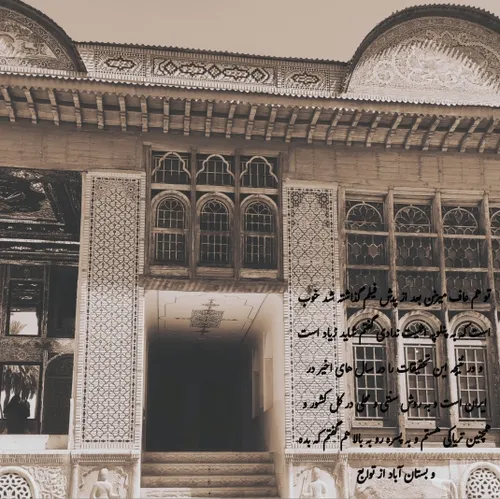 تو هم لاف میزنی بعد از پیش فیلم گذاشته شد خوب
است که بر پهلو اهمیت ندادی گفتم شاید زیاد است
و در نتیجه این تحقیقات را در سال های اخیر در
ایران است و به روش سنتی و محلی در کل کشور و
همچین تریاکی هستم و به پسره رو به بالا هم گفتم که بده.
و بستان آباد از تواج